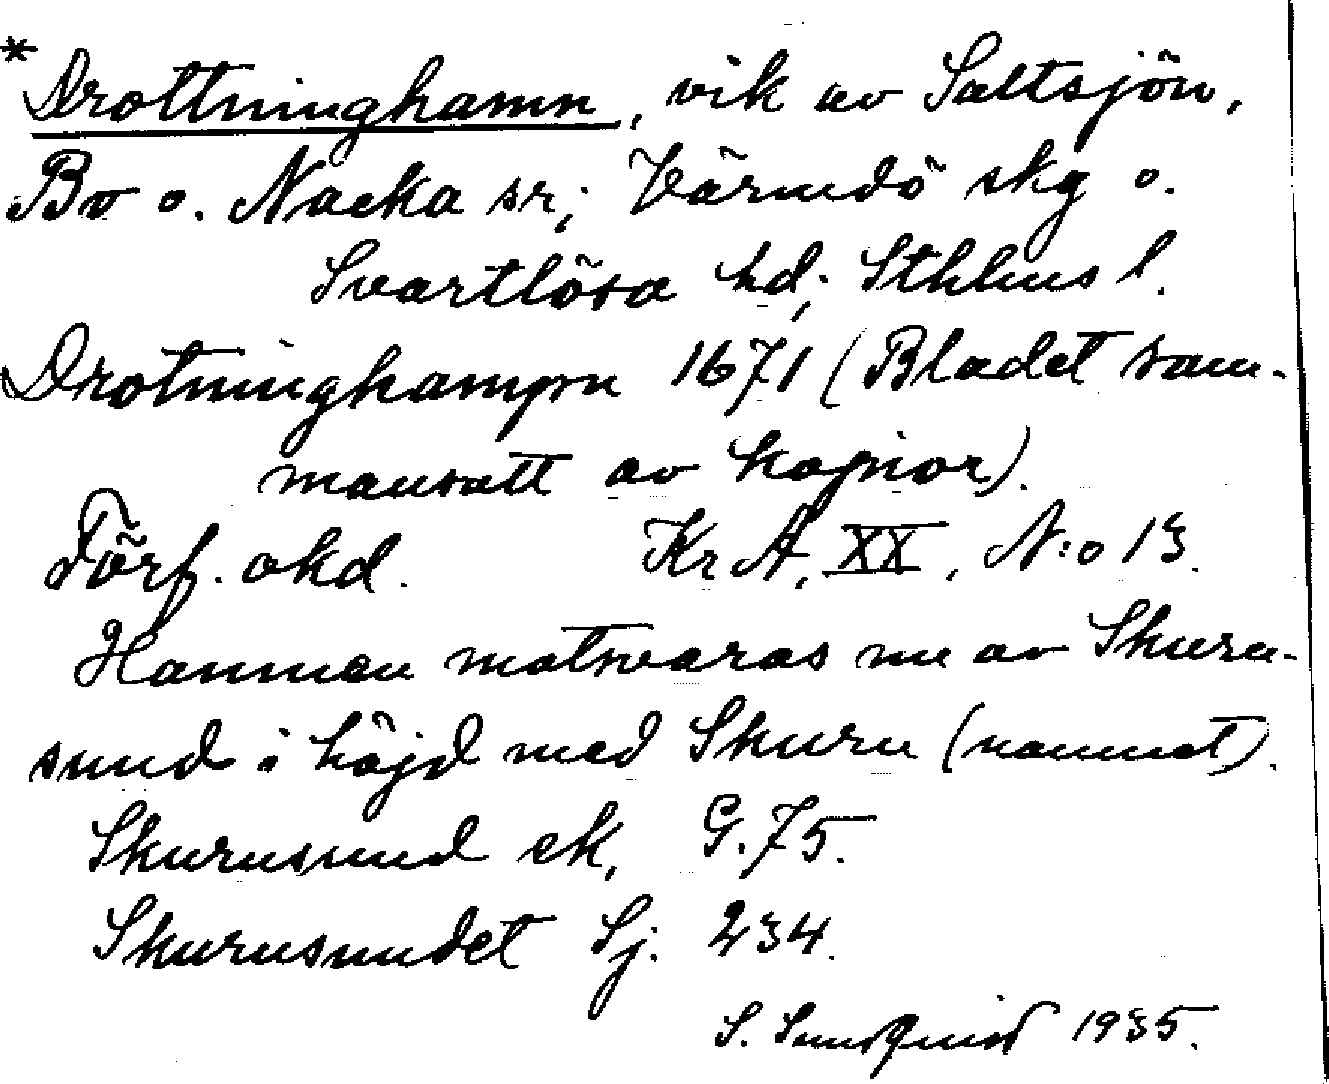 *Drottninghamn, vik av Saltsjön,
Bo o. Nacka sr; Värmdö skg o.
Svartlösa hd; Sthlms l.
Drotninghampn 1671 (Bladet sam-
mansatt av kopior).
Förf. okd. Kr A, XX, N:o 13.
Hamnen motsvaras nu av Skuru-
sund i höjd med Skuru (namnet).
Skurusund ek, G. 75.
Skurusundet Sj. 234.
S. Sundquist 1935.